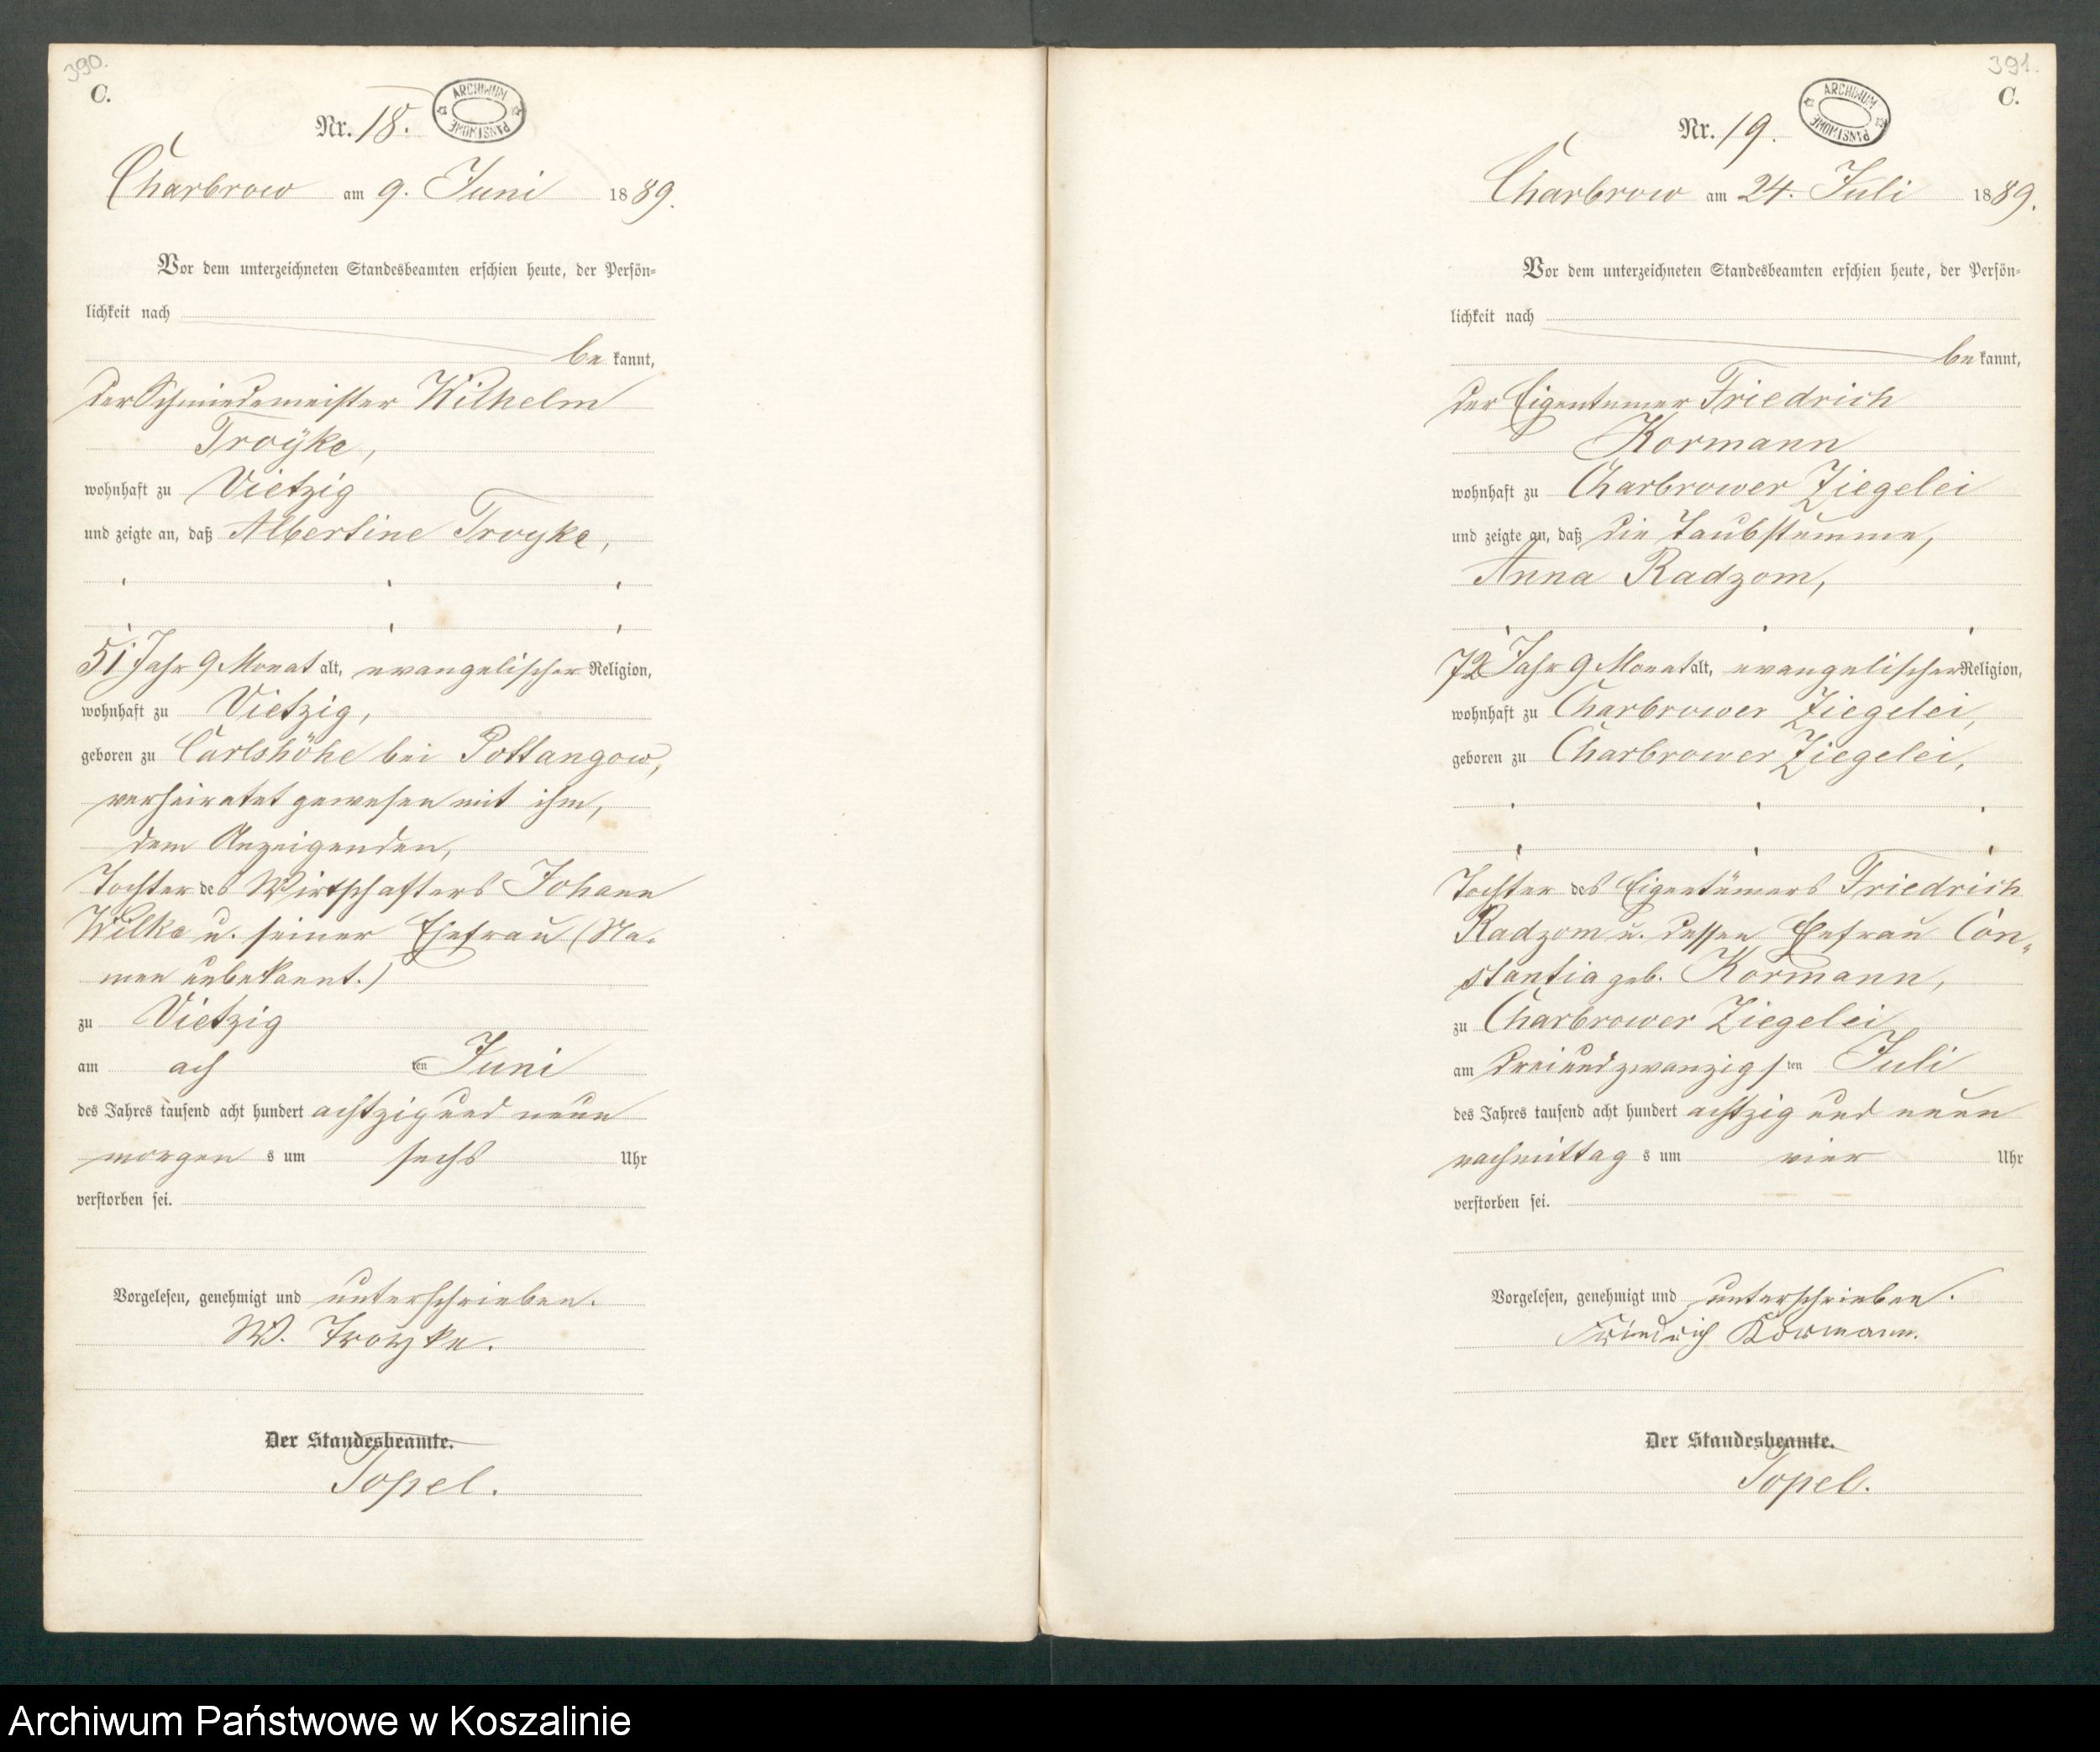 390.
C.
ARCHIWUM PAŃSTWOWE
Nr. 18.
Charbrow am 9. Juni 1889.
Vor dem unterzeichneten Standesbeamten erschien heute, der Persön=
lichkeit nach
bekannt,
der Schmiedemeister Wilhelm
Troÿke,
wohnhaft zu Vietzig
und zeigte an, daß Albertine Troyke,
51 Jahr 9 Monat alt, evangelischer Religion,
wohnhaft zu Vietzig,
geboren zu Carlshöhe bei Pottangow,
verheiratet gewesen mit ihm,
dem Anzeigenden,
Tochter des Wirtschafters Johann
Wilke u. seiner Ehefrau (Na-
men unbekannt.)
zu Vietzig
am ach ten Juni
des Jahres tausend acht hundert achtzig und neun
morgens um sechs Uhr
verstorben sei.
Vorgelesen, genehmigt und unterschrieben.
W. Troyke.
Der Standesbeamte.
Topel.
391.
C.
ARCHIWUM PAŃSTWOWE
Nr. 19.
Charbrow am 24. Juli 1889.
Vor dem unterzeichneten Standesbeamten erschien heute, der Persön=
lichkeit nach
bekannt,
der Eigentümer Friedrich
Kormann
wohnhaft zu Charbrower Ziegelei
und zeigte an, daß die Taubstumme,
Anna Radzom,
72 Jahr 9 Monat alt, evangelischer Religion,
wohnhaft zu Charbrower Ziegelei,
geboren zu Charbrower Ziegelei,
Tochter des Eigentümers Friedrich
Radzom u. dessen Ehefrau Con=
stantia geb. Kormann,
zu Charbrower Ziegelei
am dreiundzwanzigsten Juli
des Jahres tausend acht hundert achtzig und neun
nachmittags um vier Uhr
verstorben sei.
Vorgelesen, genehmigt und unterschrieben.
Friedrich Kormann.
Der Standesbeamte.
Topel.
Archiwum Państwowe w Koszalinie